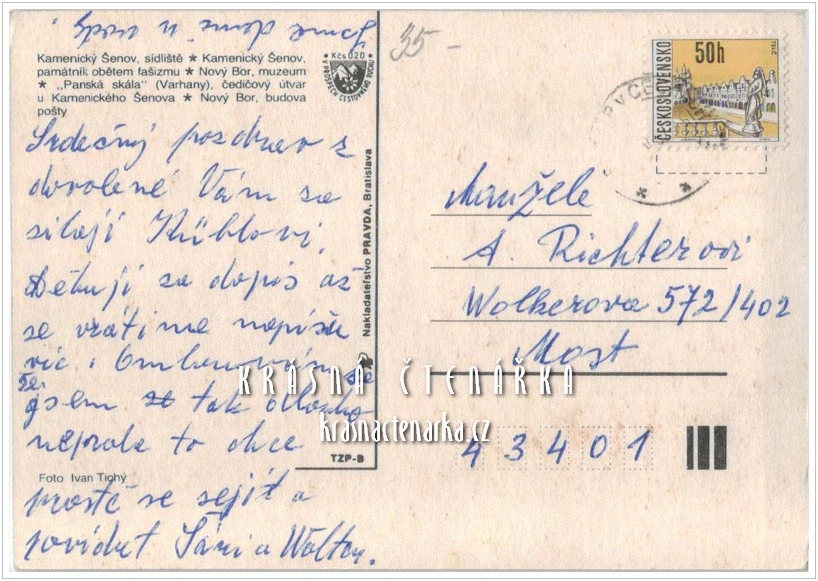 jsme doma u vody.
35-
Kamenický Šenov, sídliště * Kamenický Šenov,
památník obětem fašizmu * Nový Bor, muzeum
* „Panská skála" (Varhany), čedičový útvar
u Kamenického Šenova * Nový Bor, budova
pošty
Kčs 0,20
V PROSPĚCH CESTOVNÉHO RUCHU
ČESKOSLOVENSKO
50h
TELČ
Srdečný pozdrav z
dovolené Vám se
silají Küblovi,
Děkuji za dopis až
se vrátíme napíšu
víc.
že
jsem tak dlouho
nepsala to chce
prostě se sejít a
povídat Jáni a Walter.
Foto Ivan Tichý
TZP-B
Nakladatelstvo PRAVDA, Bratislava
Manžele
A. Richterovi
Wolkerova 572/402
Most
43401
KRÁSNÁ ČTENÁŘKA
krasnactenarka.cz